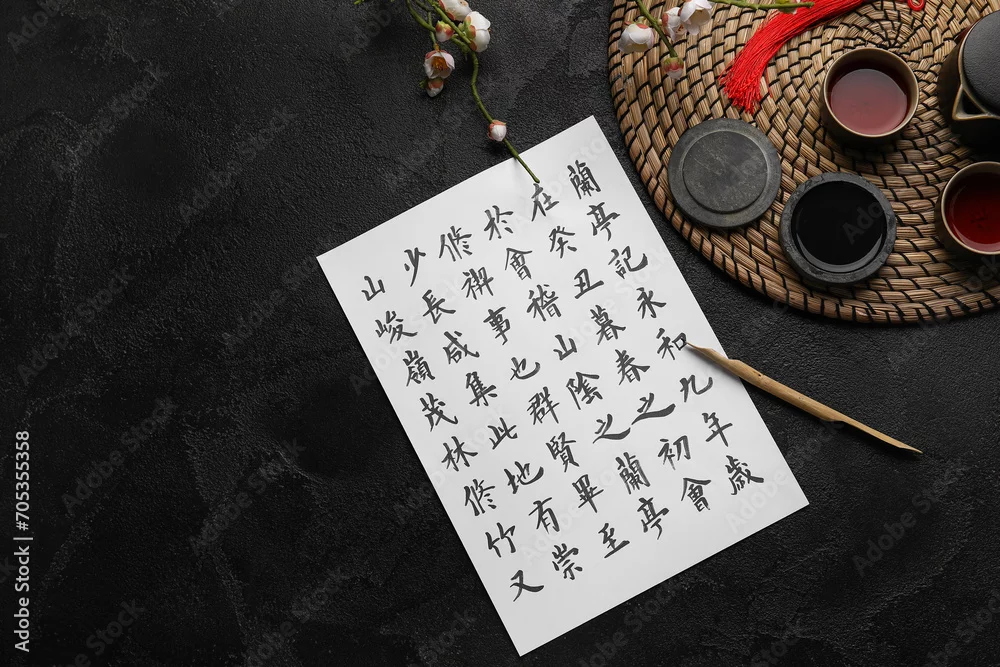 蘭亭記永和九年歲
在癸丑暮春之初會
於會稽山陰之蘭亭
修禊事也群賢畢至
少長咸集此地有崇
山峻嶺茂林修竹又
Adobe Stock | #705355358